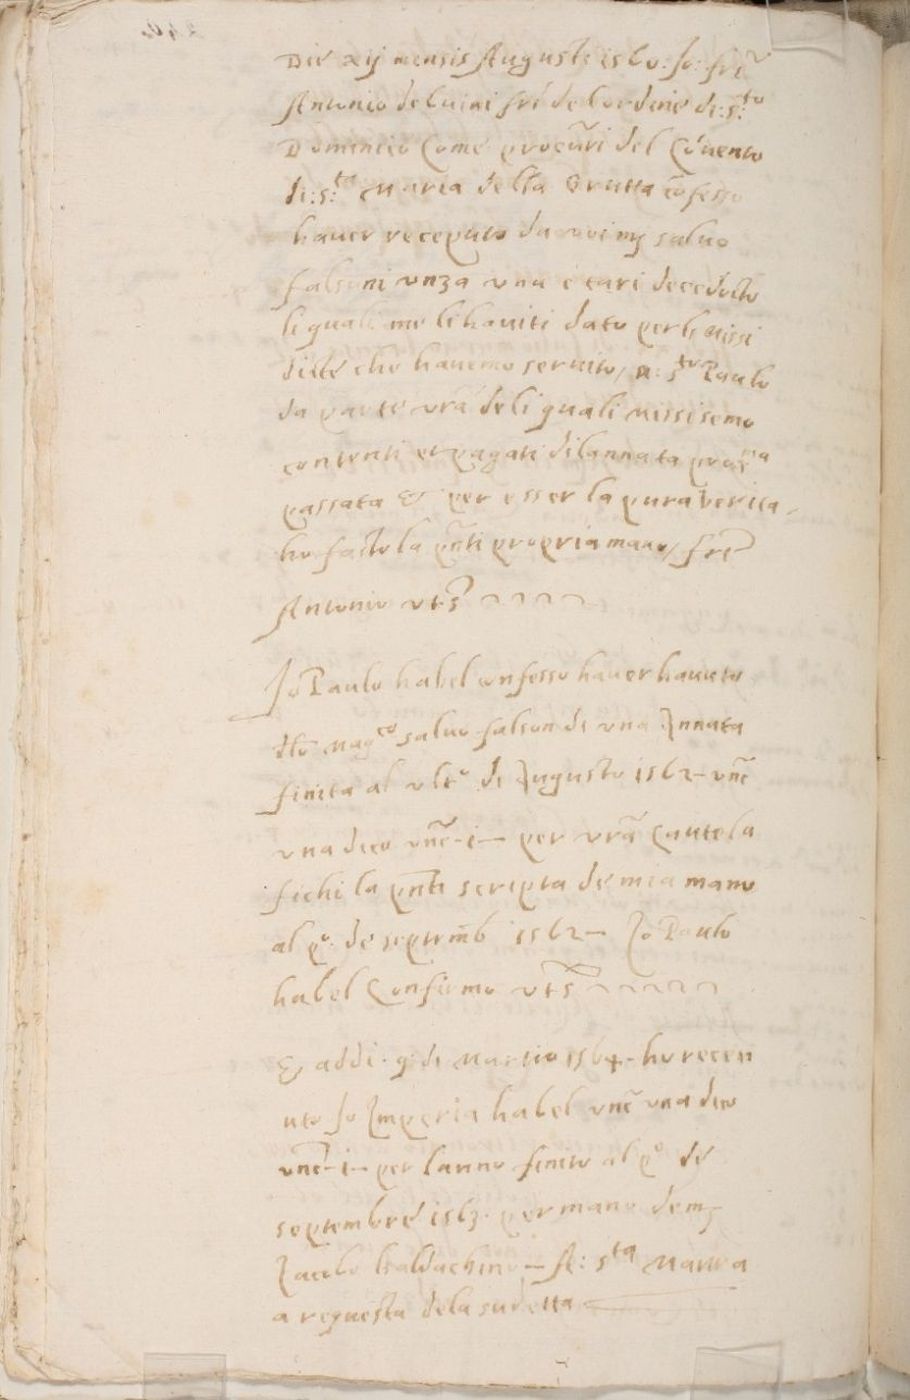 Die xij mensis Augusti 1560: Io: fr̃i
Antonio de luini frĩ de lordine di: s:to
Dominico Come procũri del Cõvento
di: s:ta Maria della Grutta cõfesso
haver receputo da voi mj salvo
falsoni unza una e tari decedocto
li quali me li haviti dato per li Missi
ditte che havemo servito, a: sto Paulo
da parte vrã deli quali missi semo
contenti et pagati di lannata prox:ma
passata & per esser la pura verita
ho facto la pñti propria mano, fri
Antonio uts̃
Io Paulo habel confesso haver havuto
dlo Magco salvo falson di una Annata
finita al ulto di Augusto 1562 – unc̃
una dico unc̃ – i – per vrã Cautela
fichi la pñti scripta de mia mano
al po: de septemb̃ 1562 – Io Paulo
habel Confirmo uts̃
& addi · 9 · di Martio 1564 · ho recep
uto Io Imperia habel unc̃ una dico
unc̃ – i – per lanno finito al po de
septembre 1563 · per mano de mj
Iacobo baldachino – A: sta Maura
a requesta dela sudetta